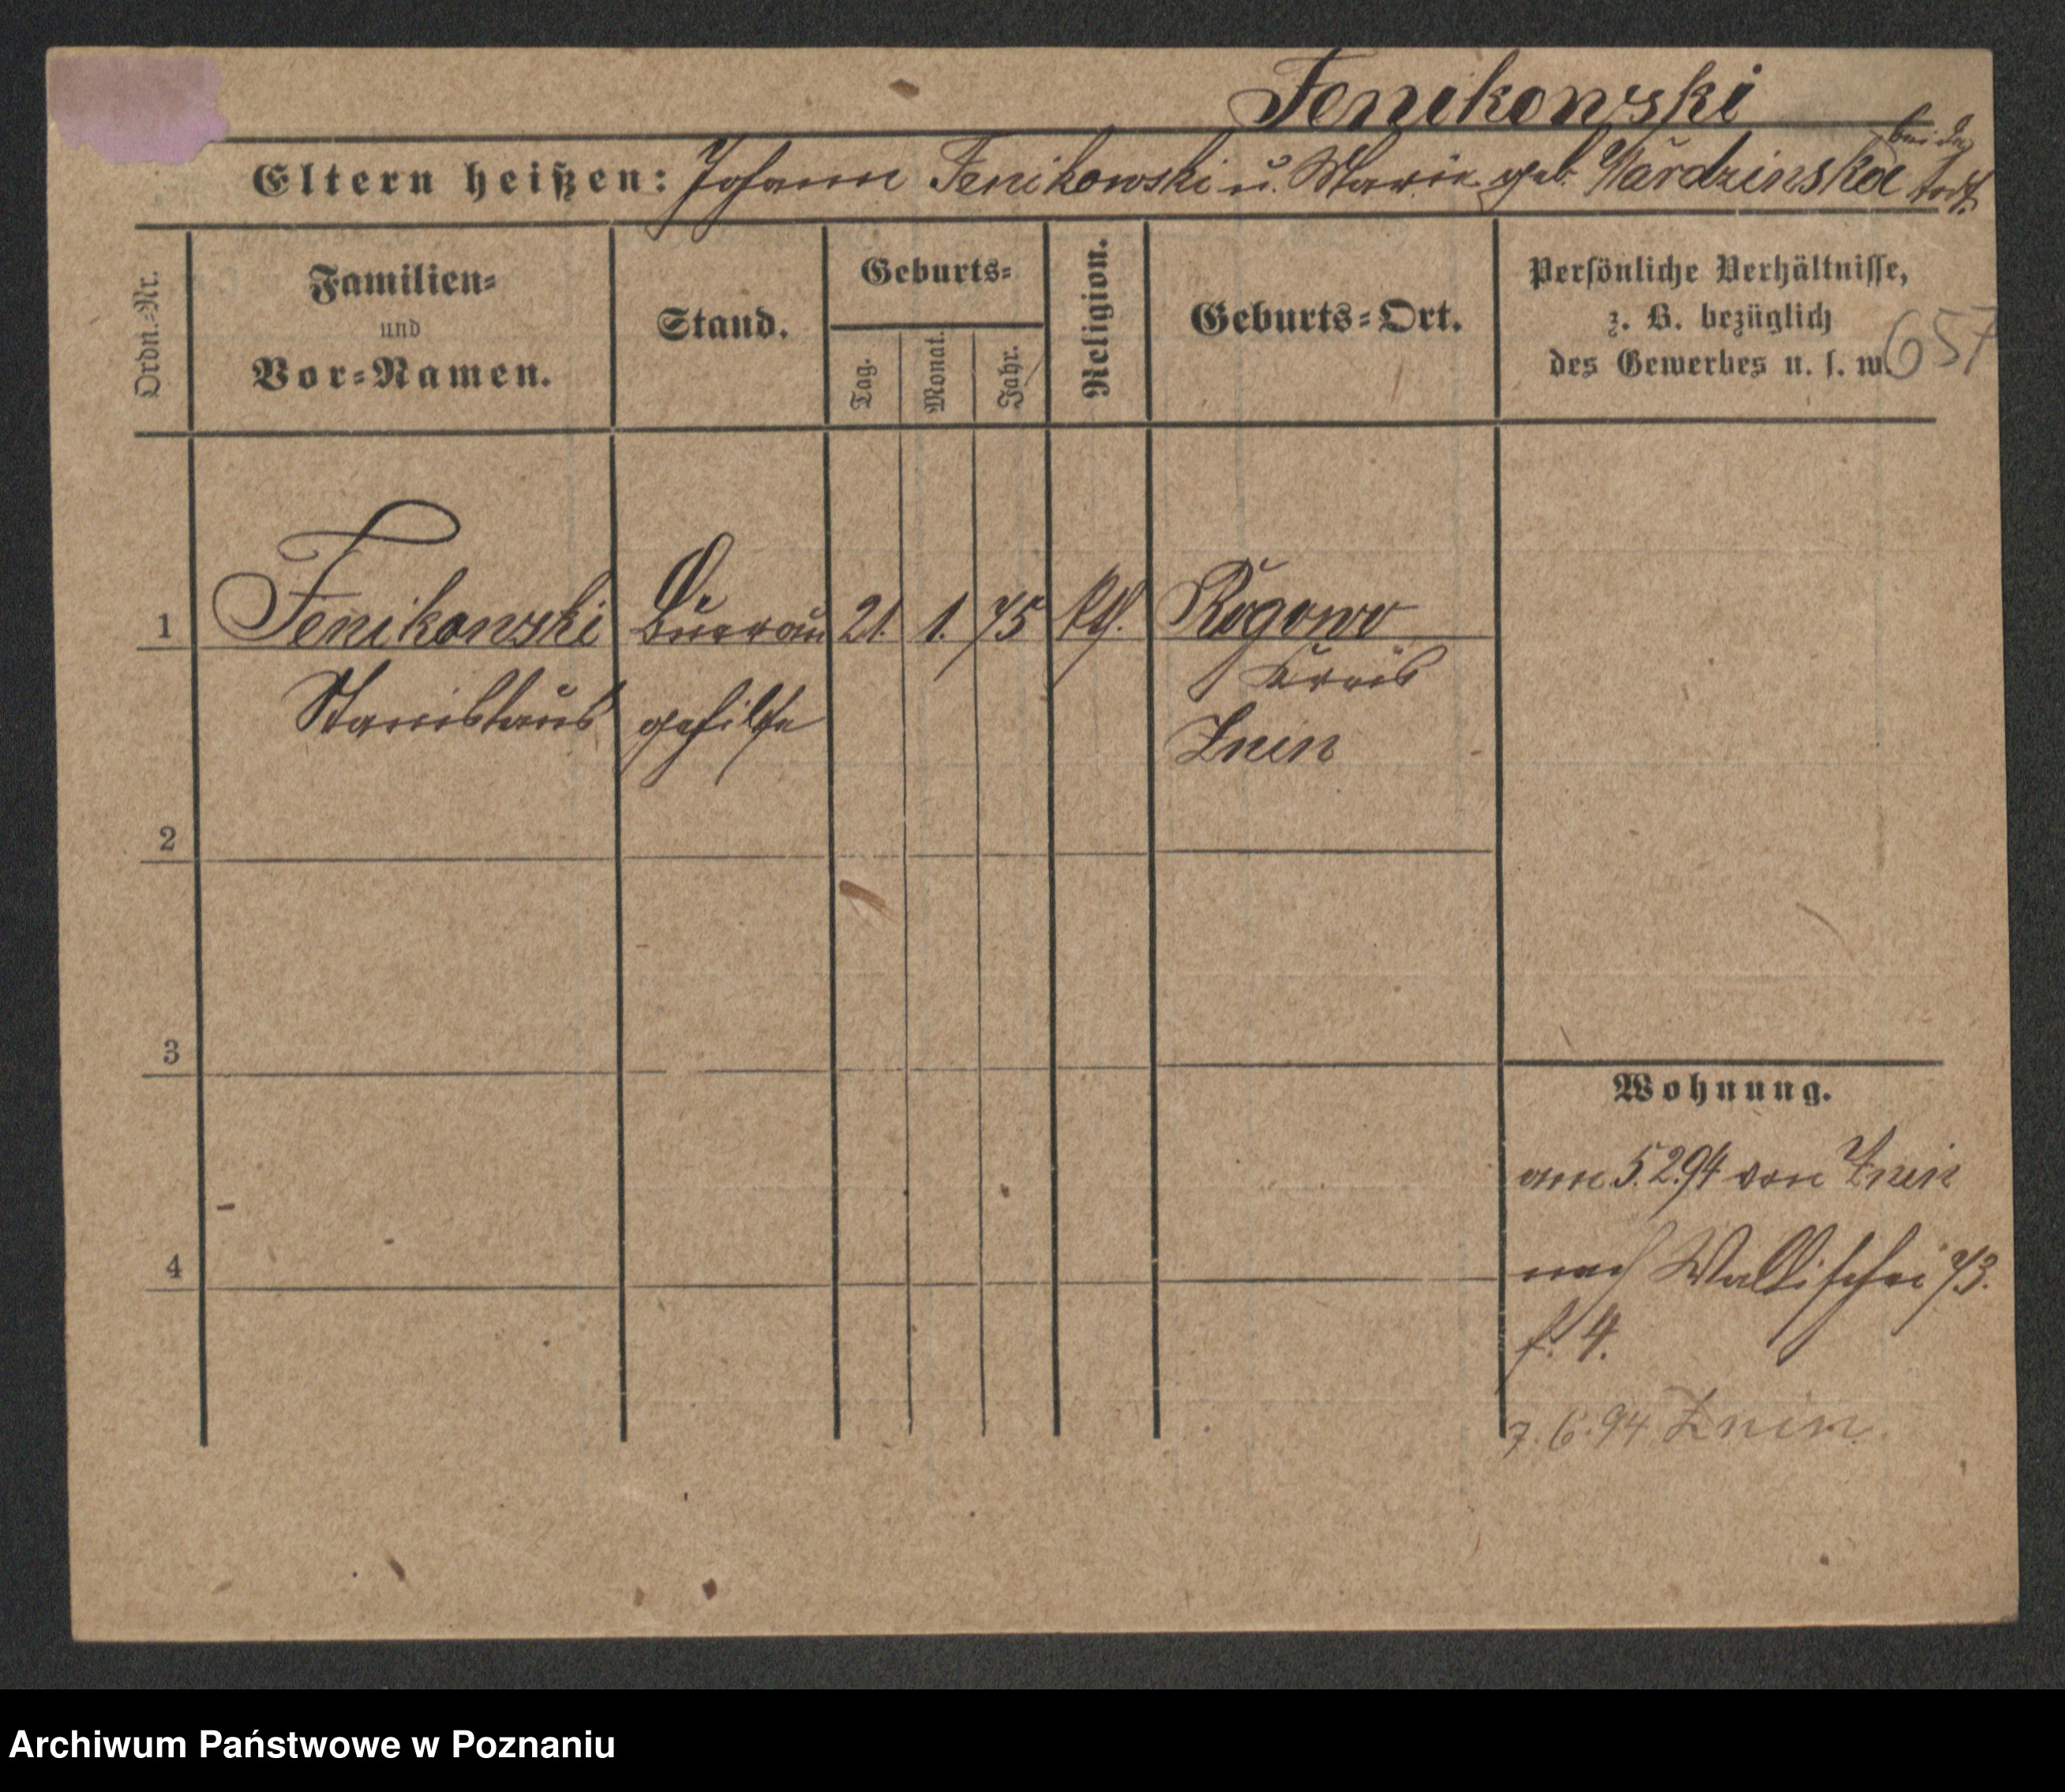 Fenikowski
Eltern heißen: Johann Fenikowski u. Marie geb. Wardzinska beide todt.
Ordn.=Nr.
Familien=
und
Vor=Namen.
Stand.
Geburts=
Tag.
Monat.
Jahr.
Religion.
Geburts=Ort.
Persönliche Verhältnisse,
z. B. bezüglich
des Gewerbes u. s. w.
657
1 Fenikowski Bureau 21. 1. 75 kth. Rogowo
Kreis
Stanislaus gehilfe
Znin
2
3
4
Wohnung.
am 5.2.94 von Znin
nach Wallischei 73.
b. 4.
7.6.94 Znin
Archiwum Państwowe w Poznaniu